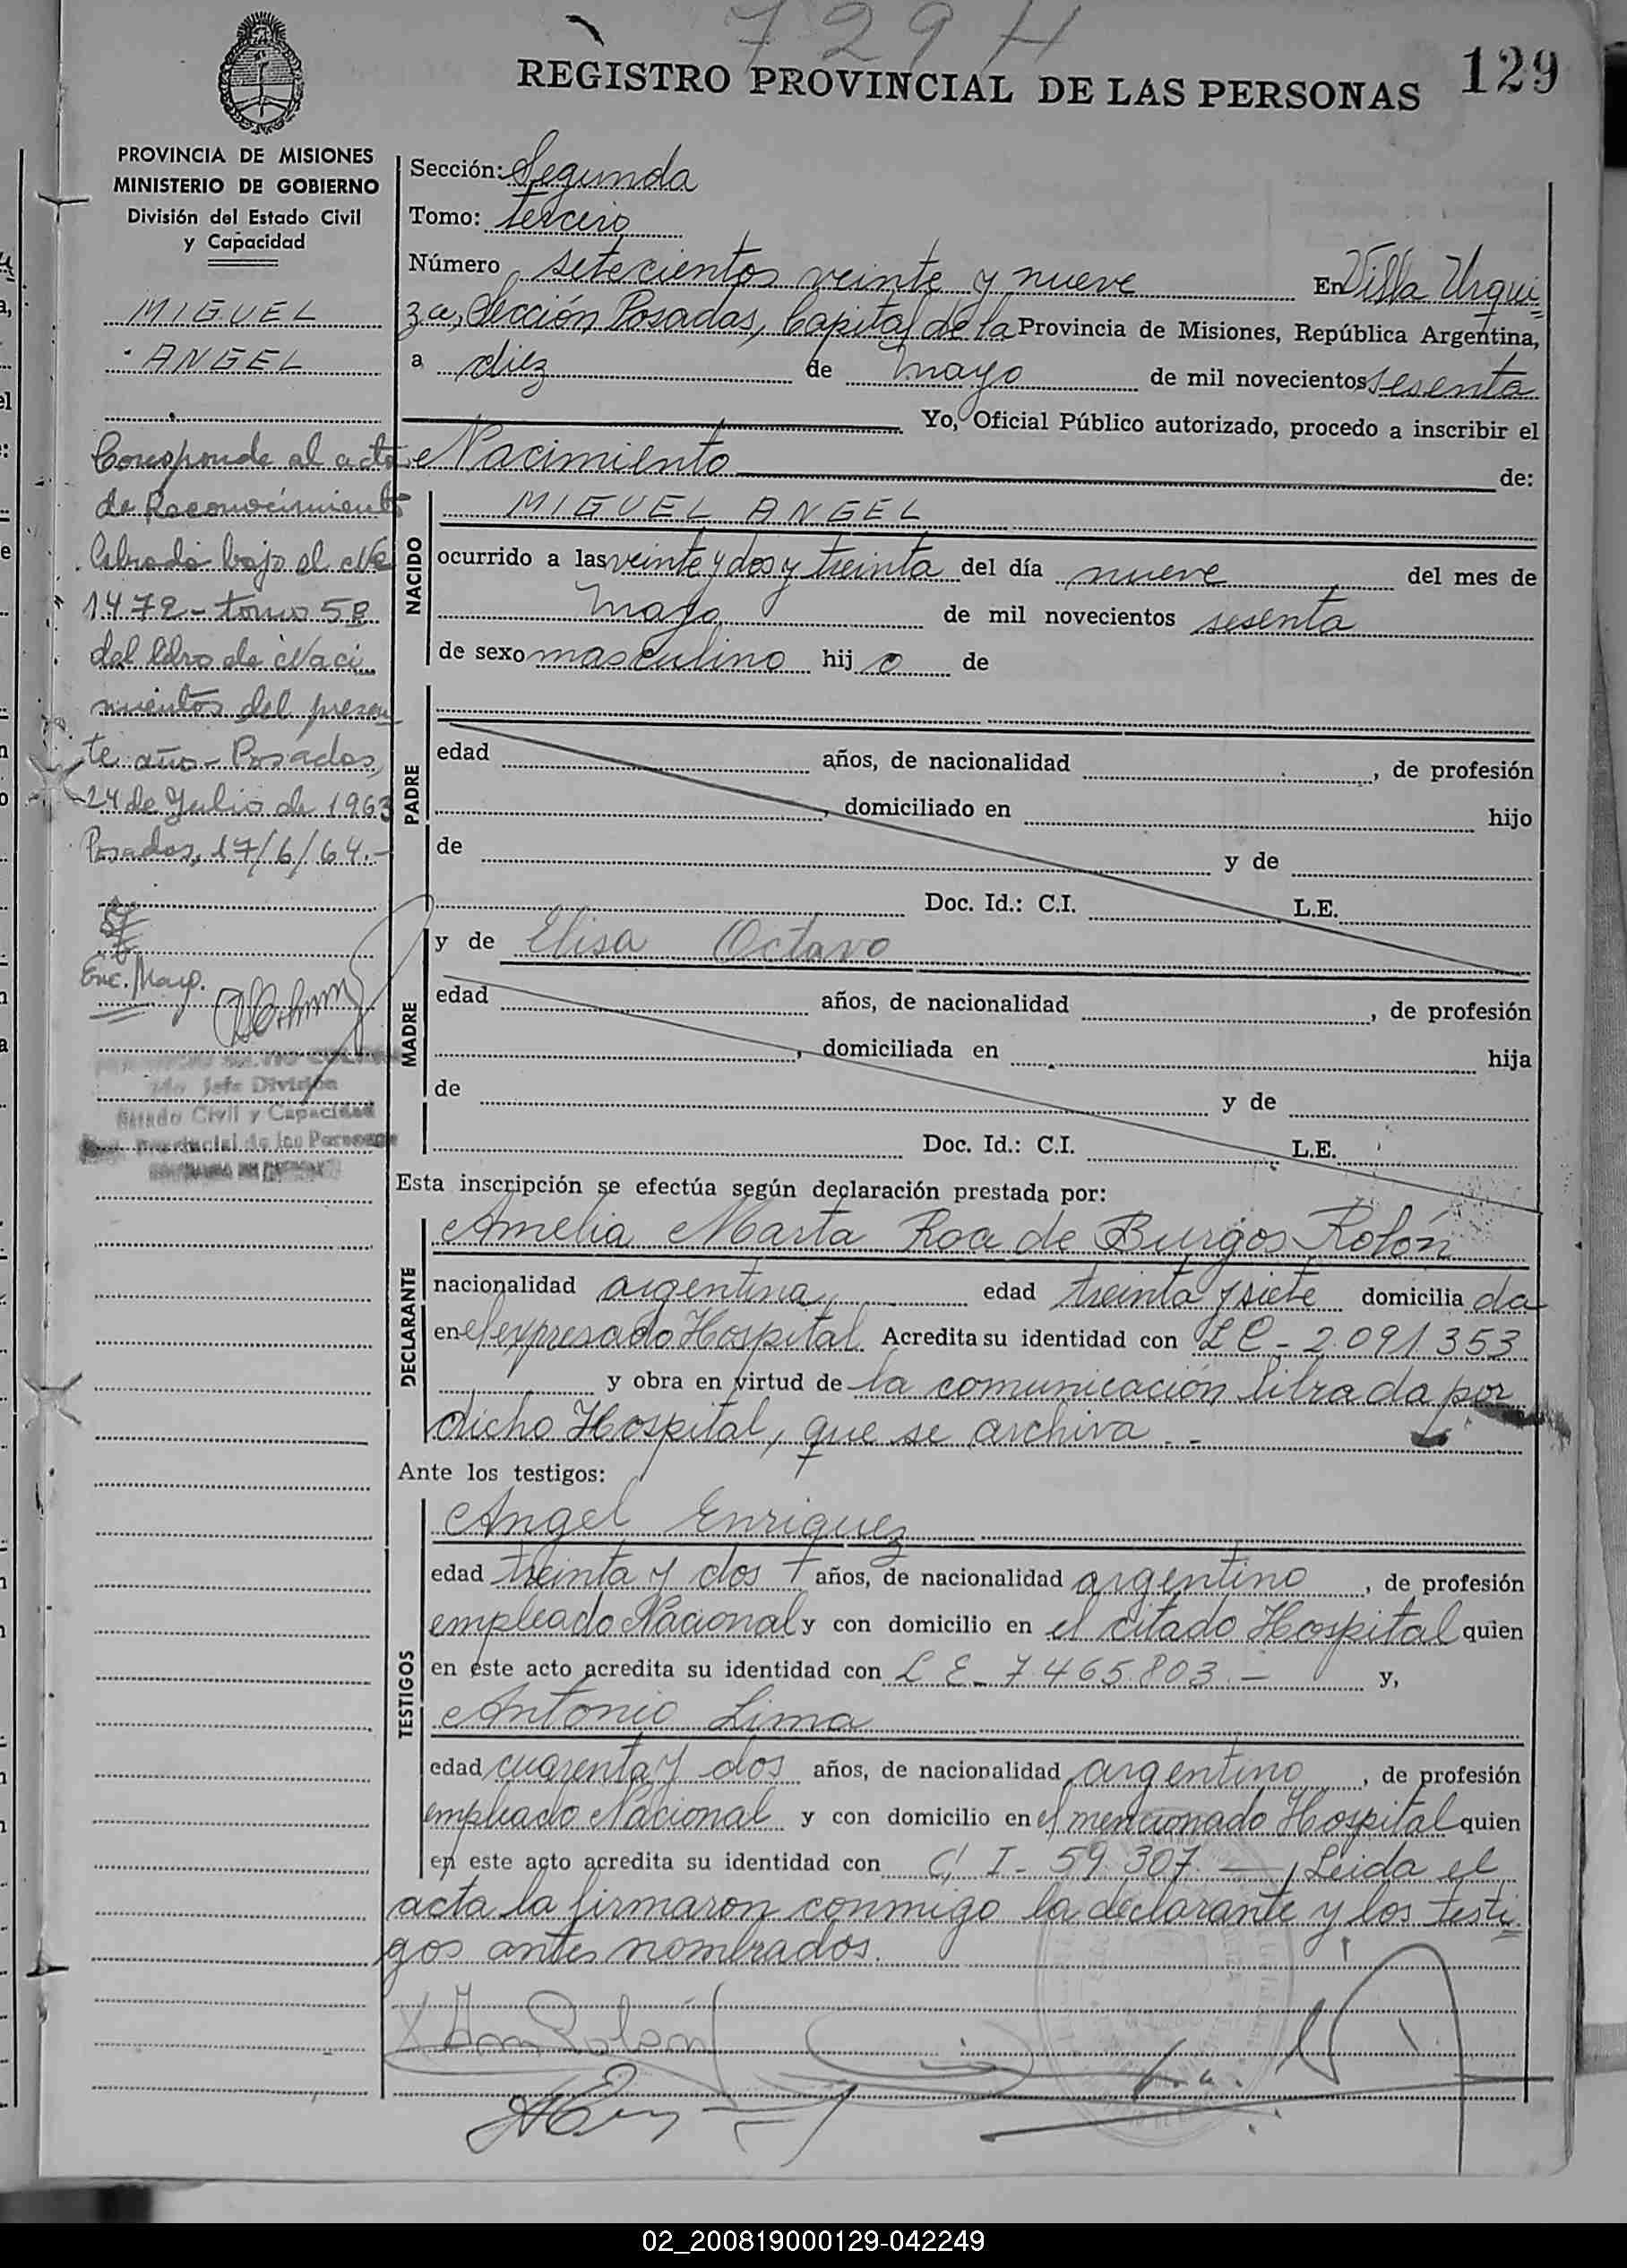 729 H
129
REGISTRO PROVINCIAL DE LAS PERSONAS
PROVINCIA DE MISIONES
MINISTERIO DE GOBIERNO
División del Estado Civil
y Capacidad
MIGUEL
ANGEL
Corresponde al acta
de Reconocimiento
Labrada bajo el Nº
1472 - tomo 5º
del libro de Naci
mientos del presen
te año - Posadas,
24 de Julio de 1963
Posadas, 17/6/64.-
Enc. Mayo.
Jefe División
Estado Civil y Capacidad
Provincial de las Personas
Sección: Segunda
Tomo: tercero
Número setecientos veinte y nueve En Villa Urqui
za, Sección Posadas, Capital de la Provincia de Misiones, República Argentina,
a diez de mayo de mil novecientos sesenta
Yo, Oficial Público autorizado, procedo a inscribir el
Nacimiento de:
NACIDO
MIGUEL ANGEL
ocurrido a las veinte y dos y treinta del día nueve del mes de
mayo de mil novecientos sesenta
de sexo masculino hijo de
PADRE
edad años, de nacionalidad , de profesión
, domiciliado en hijo
de y de
Doc. Id.: C.I. L.E.
MADRE
y de Elisa Octavo
edad años, de nacionalidad , de profesión
, domiciliada en hija
de y de
Doc. Id.: C.I. L.E.
Esta inscripción se efectúa según declaración prestada por:
DECLARANTE
Amelia Marta Roa de Burgos Rolón
nacionalidad argentina, edad treinta y siete domiciliada
en el expresado Hospital. Acredita su identidad con L C - 2.091.353
y obra en virtud de la comunicación librada por
dicho Hospital, que se archiva.-
Ante los testigos:
TESTIGOS
Angel Enriquez
edad treinta y dos años, de nacionalidad argentino, de profesión
empleado Nacional y con domicilio en el citado Hospital quien
en este acto acredita su identidad con L E - 7.465.803.- y,
Antonio Lima
edad cuarenta y dos años, de nacionalidad argentino, de profesión
empleado Nacional y con domicilio en el mencionado Hospital quien
en este acto acredita su identidad con C I - 59.307.- Leida el
acta la firmaron conmigo la declarante y los testi
gos antes nombrados.
02_200819000129-042249